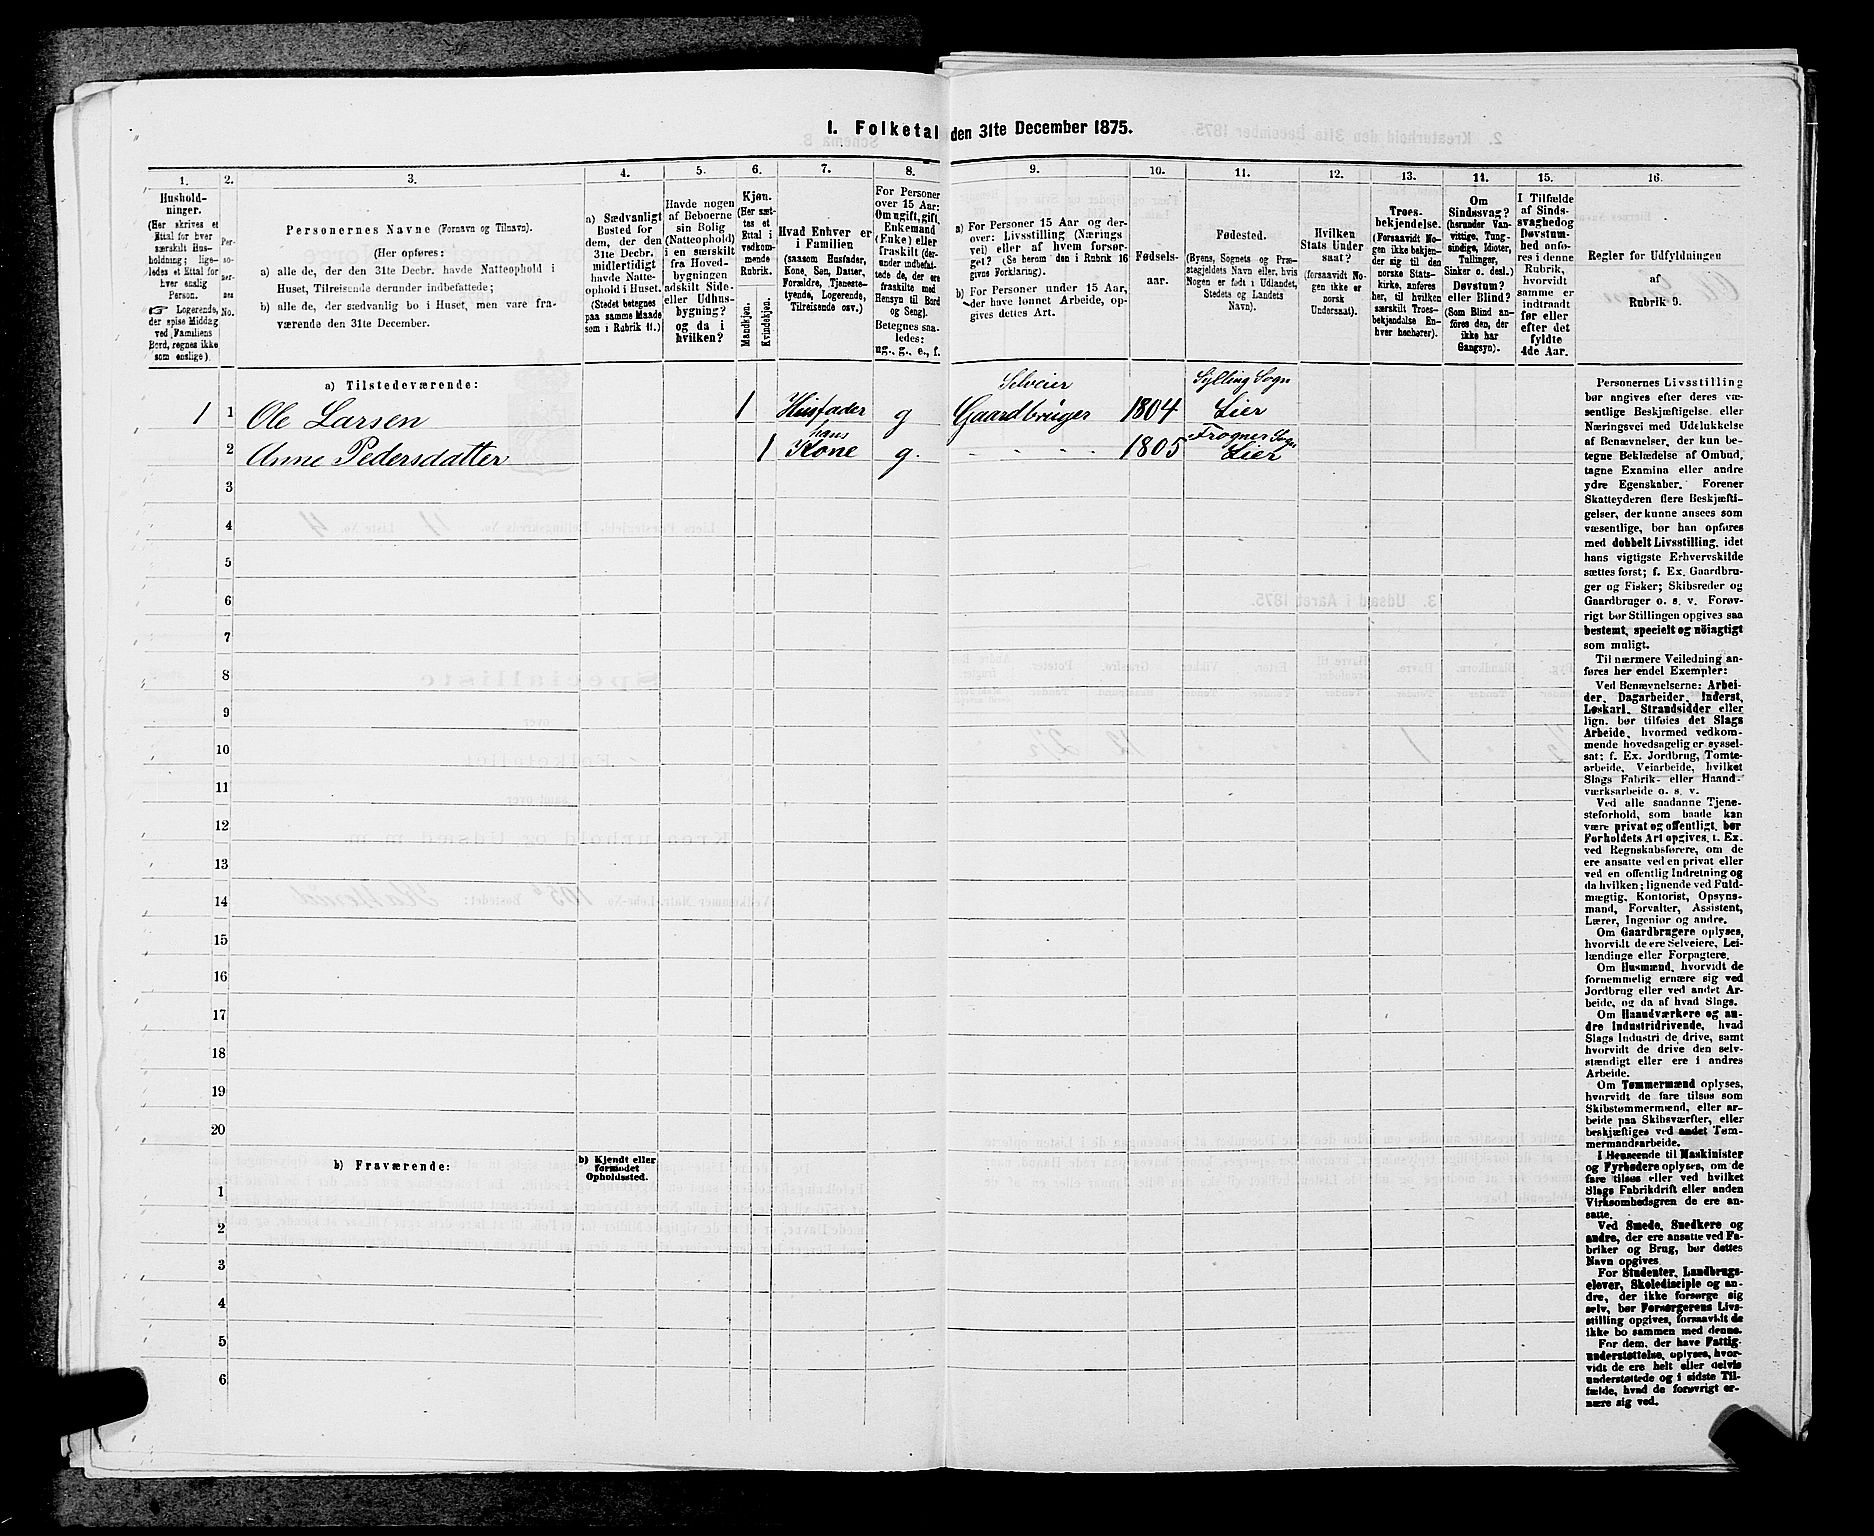 I. Folketal den 31te December 1875.
1. 2. 3. 4. 5. 6. 7. 8. 9. 10. 11. 12. 13. 14. 15. 16.
Husholdninger.
(Her skrives et
Ettal for hver
særskilt Hus-
holdning; lige-
ledes et Ettal for
hver enslig
Person.
☞ Logerende,
der spise Middag
ved Familiens
Bord, regnes ikke
som enslige).
Per-
so-
per-
nes
No.
Personernes Navne (Fornavn og Tilnavn).
(Her opføres:
a) alle de, der den 31te Decbr. havde Natteophold i
Huset, Tilreisende derunder indbefattede;
b) alle de, der sædvanlig bo i Huset, men vare fra-
værende den 31te December.
a) Sædvanligt
Bosted for
dem, der den
31te Decbr.
midlertidigt
havde Natte-
ophold i Huset.
(Stedet betegnes
paa samme Maade
som i Rubrik 11.)
Havde nogen
af Beboerne
sin Bolig
(Natteophold)
i en særskilt
fra Hoved-
bygningen
adskilt Side-
eller Udhus-
bygning?
og da i
hvilken?
Kjøn.
(Her sæt-
tes et
Ettal i
vedkom-
mende
Rubrik.
Mandkjøn.
Kvindekjøn.
Hvad Enhver er
i Familien
(saasom Husfader,
Kone, Søn, Datter,
Forældre, Tjeneste-
tyende, Logerende,
Tilreisende osv.)
For Personer
over 15 Aar:
Om ugift, gift,
Enkemand
(Enke) eller
fraskilt (der-
under indbefat-
tede de, der ere
fraskilte med
Hensyn til Bord
og Seng).
Betegnes saa-
ledes:
ug., g., e., f.
a) For Personer 15 Aar og der-
over: Livsstilling (Nærings-
vei) eller af hvem forsør-
get? (Se herom den i Rubrik 16
givne Forklaring).
b) For Personer under 15 Aar,
der have lønnet Arbeide, op-
gives dettes Art.
Fødsels-
aar.
Fødested.
(Byens, Sognets og Præ-
stegjeldets Navn eller, hvis
Nogen er født i Udlandet,
Stedets og Landets
Navn).
Hvilken
Stats Under-
saat?
(forsaavidt No-
gen ikke er
norsk
Undersaat).
Troes-
bekjendelse.
(Forsaavidt No-
gen ikke bekjen-
der sig til den
norske Stats-
kirke, anføres
her, til hvilken
særskilt Troes-
bekjendelse En-
hver henhører).
Om
Sindssvag?
(herunder Van-
vittige, Tung-
sindige, Idioter,
Tullinger,
Sinker o. desl.)
Døvstum?
eller Blind?
(Som Blind an-
føres den, der
ikke har
Gangsyn).
I Tilfælde
af Sinds-
svaghed og
Døvstum-
hed anfø-
res i denne
Rubrik,
hvorvidt
samme er
indtraadt
før eller
efter det
fyldte
4de Aar.
Regler for Udfyldningen
af
Rubrik 9.
a) Tilstedeværende:
1 1 Ole Larsen 1 Husfader g Selveier Gaardbruger 1804 Sylling Sogn Lier
2 Anne Pedersdatter 1 hans Kone g. 1805 Frogner Sogn Lier
3
4
5
6
7
8
9
10
11
12
13
14
15
16
17
18
19
20
b) Fraværende:
b) Kjendt eller
formodet
Opholdssted.
1
2
3
4
5
6
Personernes Livsstilling
bør angives efter deres væ-
sentlige Beskjæftigelse eller
Næringsvei med Udelukkelse
af Benævnelser, der kun be-
tegne Beklædelse af Ombud,
tagne Examina eller andre
ydre Egenskaber. Forener
Skatteyderen flere Beskjæfti-
gelser, der kunne ansees som
væsentlige, bør han opføres
med dobbelt Livsstilling, idet
hans vigtigste Erhvervskilde
sættes først; f. Ex. Gaardbru-
ger og Fisker; Skibsreder og
Gaardbruger o. s. v. Forøv-
rigt bør Stillingen opgives saa
bestemt, specielt og nöiagtigt
som muligt.
Til nærmere Veiledning an-
føres her endel Exempler:
Ved Benævnelserne: Arbei-
der, Dagarbeider, Inderst,
Løskarl, Strandsidder eller
lign. bør tilføies det Slags
Arbeide, hvormed vedkom-
mende hovedsagelig er syssel-
sat; f. Ex. Jordbrug, Tomte-
arbeide, Veiarbeide, hvilket
Slags Fabrik- eller Haand-
værksarbeide o. s. v.
Ved alle saadanne Tjene-
steforhold, som baade kan
være privat og offentligt, bør
Forholdets Art opgives, t. Ex.
ved Regnskabsførere, om de
ere ansatte ved en privat eller
ved en offentlig Indretning og
da hvilken; lignende ved Fuld-
mægtig, Kontorist, Opsyns-
mand, Forvalter, Assistent,
Lærer, Ingeniør og andre.
Om Gaardbrugere oplyses,
hvorvidt de ere Selveiere, Lei-
lændinge eller Forpagtere.
Om Husmænd, hvorvidt de
fornemmelig ernære sig ved
Jordbrug eller ved andet Ar-
beide, og da af hvad Slags.
Om Haandværkere og an-
dre Industridrivende, hvad
Slags Industri de drive, samt
hvorvidt de drive den selv-
stændigt eller ere i andres
Arbeide.
Om Tømmermænd oplyses,
hvorvidt de fare tilsøs som
Skibstømmermænd, eller ar-
beide paa Skibsværfter, eller
beskjæftiges ved andet Tøm-
mermandsarbeide.
I Henseende til Maskinister
og Fyrbødere oplyses, om de
fare tilsøs eller ved hvilket
Slags Fabrikdrift eller anden
Virksomhedsgren de ere an-
satte.
Ved Smede, Snedkere og
andre, der ere ansatte ved Fa-
briker og Brug, bør dettes
Navn opgives.
For Studenter, Landbrugs-
elever, Skoledisciple og an-
dre, der ikke forsørge sig
selv, bør Forsørgerens Livs-
stilling opgives, forsaavidt de
ikke bo sammen med denne.
For dem, der have Fattig-
understøttelse, oplyses, hvor-
vidt de ere helt eller delvis
understøttede og i sidste Til-
fælde, hvad de forøvrigt er-
nære sig ved.